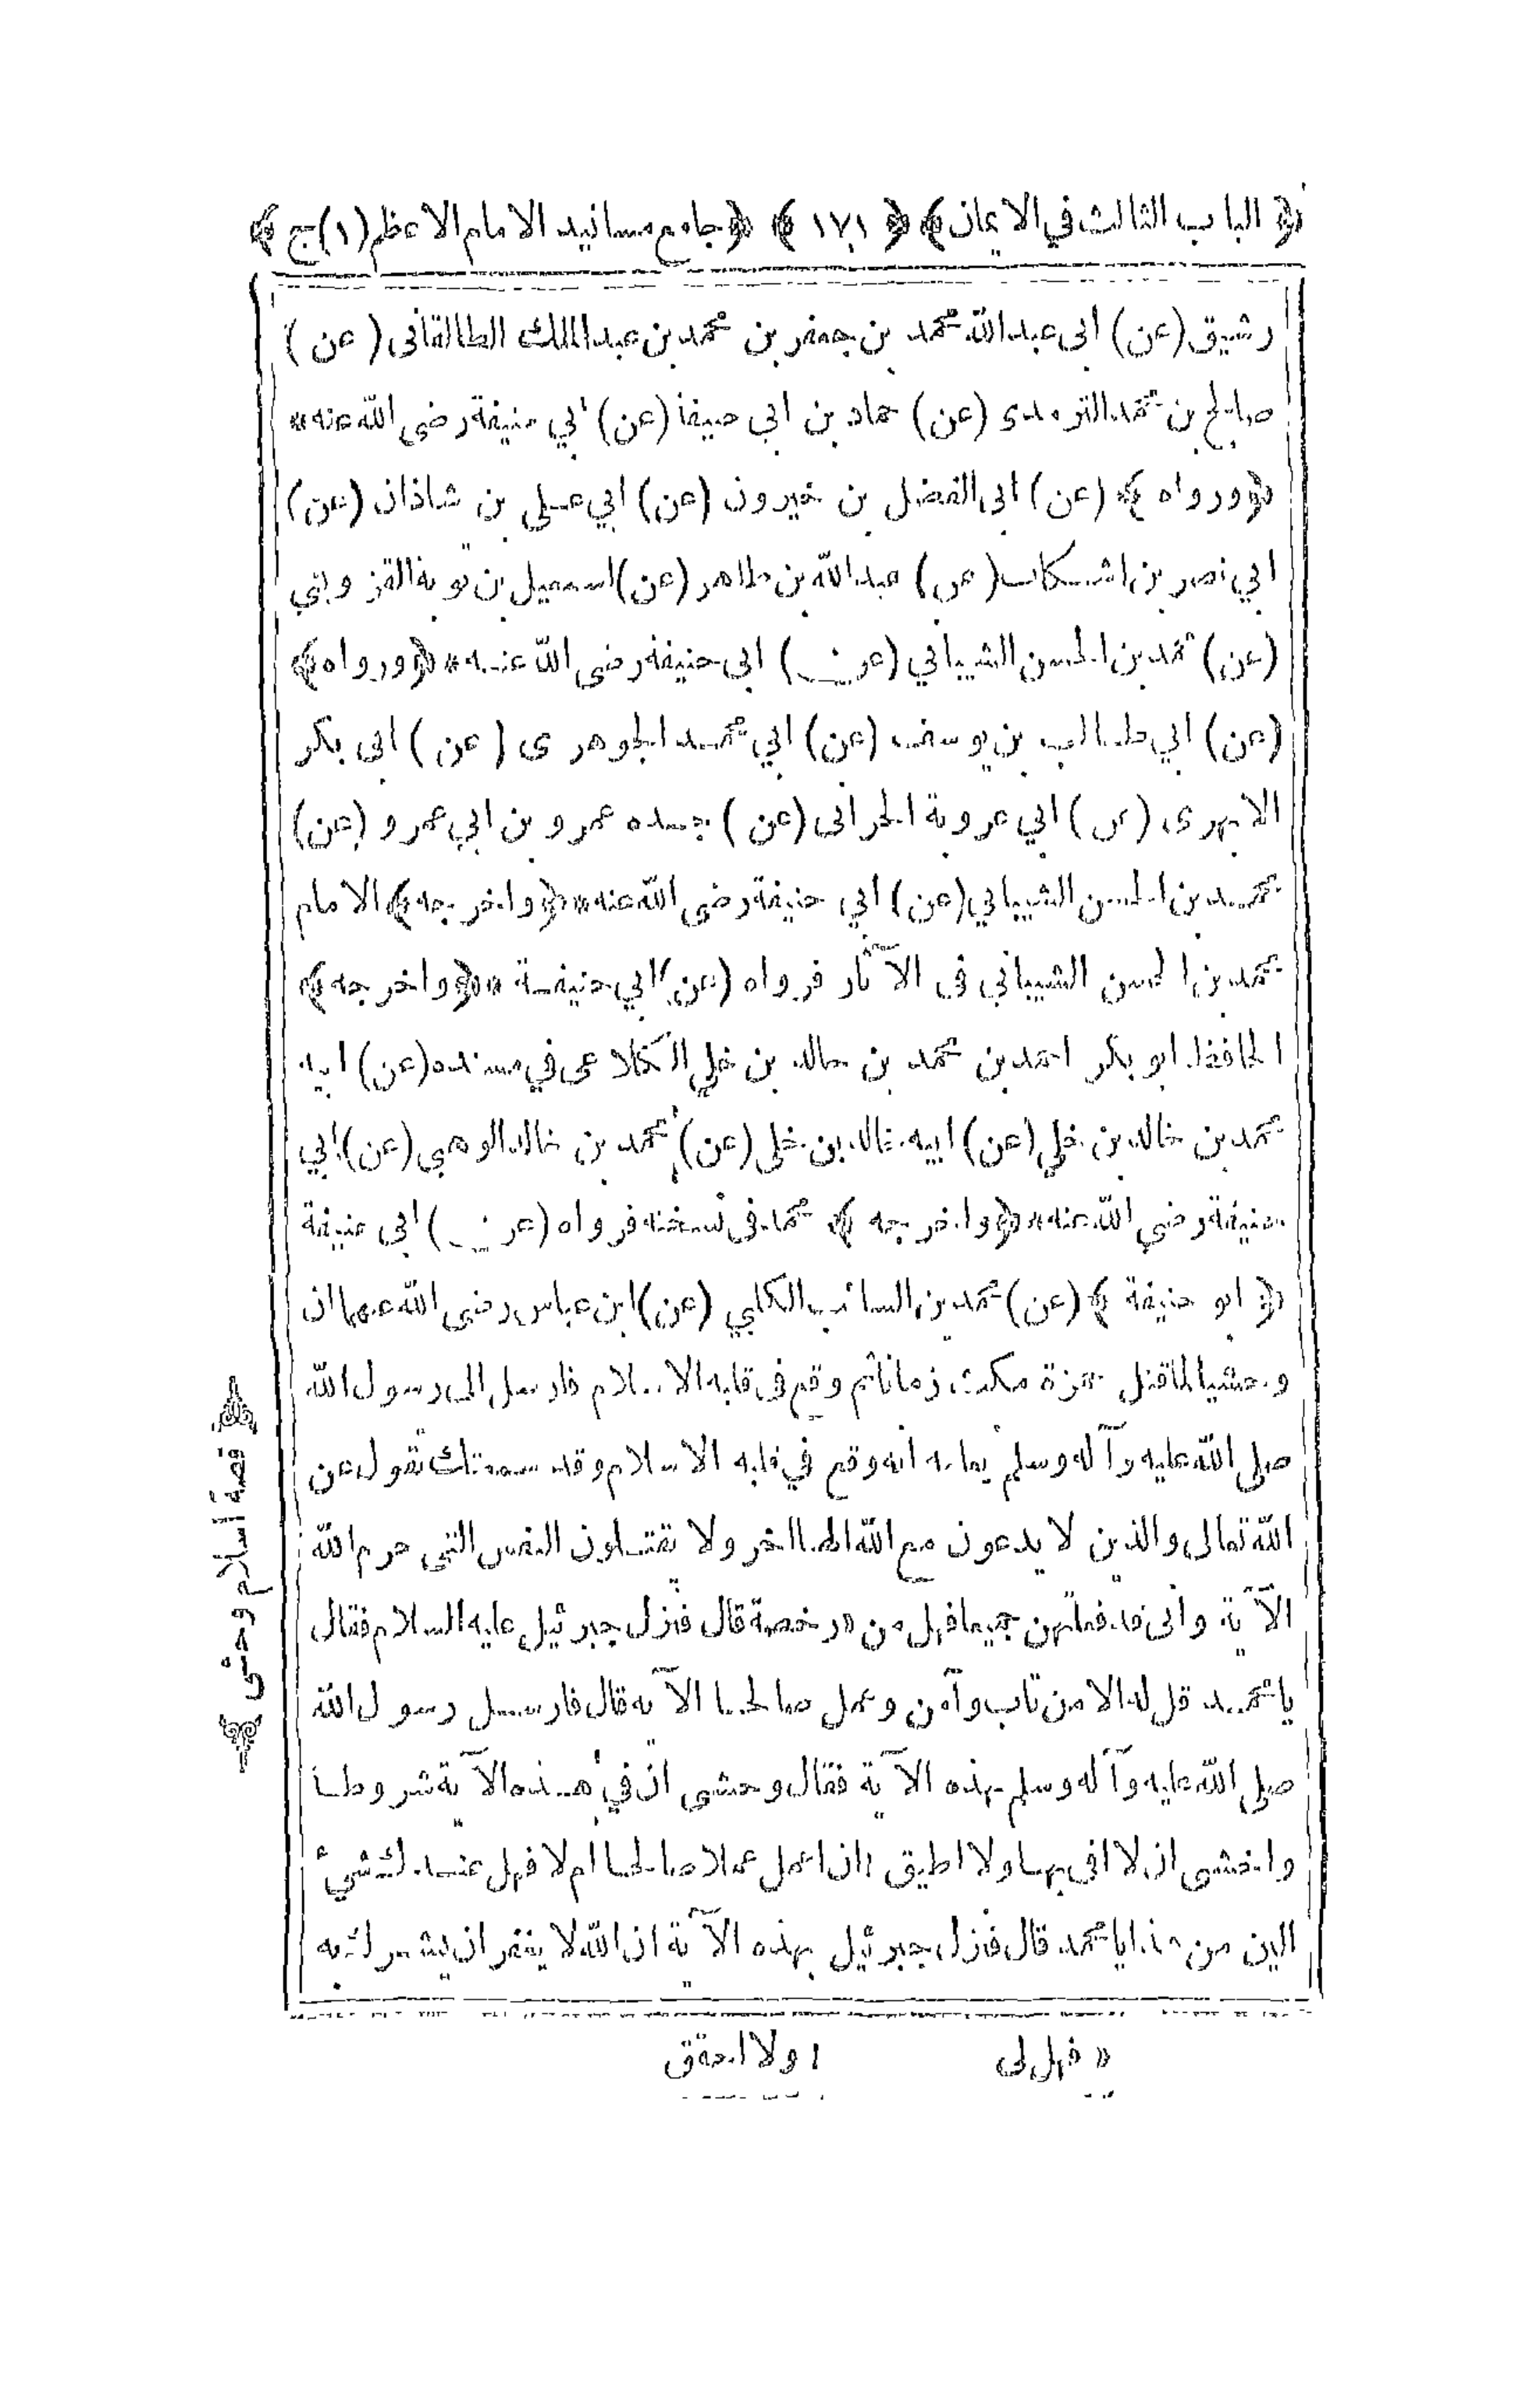 ﴿ الباب الثالث في الايمان ﴾ ﴿ ١٧١ ﴾ ﴿ جامع مسانيد الامام الاعظم (١) ج ﴾
رشيق (عن) ابى عبد الله محمد بن جعفر بن محمد بن عبد الملك الطالقانى (عن)
صالح بن محمد الترمذى (عن) حماد بن ابي حنيفة (عن) ابي حنيفة رضى الله عنه *
﴿ ورواه ﴾ (عن) ابى الفضل بن خيرون (عن) ابي على بن شاذان (عن)
ابي نصر بن اشكاب (عن) عبد الله بن طاهر (عن) اسمعيل بن توبة القزويني
(عن) محمد بن الحسن الشيباني (عن) ابى حنيفة رضى الله عنه * ﴿ ورواه ﴾
(عن) ابي طالب بن يوسف (عن) ابي محمد الجوهرى (عن) ابى بكر
الابهرى (عن) ابي عروبة الحرانى (عن) جده عمرو بن ابي عمرو (عن)
محمد بن الحسن الشيباني (عن) ابي حنيفة رضى الله عنه * ﴿ واخرجه ﴾ الامام
محمد بن الحسن الشيبانى فى الآثار فرواه (عن) ابي حنيفة * ﴿ واخرجه ﴾
الحافظ ابو بكر احمد بن محمد بن خالد بن خلي الكلاعى في مسنده (عن) ابيه
محمد بن خالد بن خلي (عن) ابيه خالد بن خلى (عن) محمد بن خالد الوهبي (عن) ابي
حنيفة رضي الله عنه * ﴿ واخرجه ﴾ محمد فى نسخته فرواه (عن) ابى حنيفة
﴿ ابو حنيفة ﴾ (عن) محمد بن السائب الكلبي (عن) ابن عباس رضى الله عنهما ان
وحشيا لما قتل حمزة مكث زمانا ثم وقع فى قلبه الاسلام فارسل الى رسول الله
صلى الله عليه وآله وسلم يعلمه انه وقع في قلبه الاسلام وقد سمعتك تقول عن
الله تعالى والذين لا يدعون مع الله الها آخر ولا يقتلون النفس التى حرم الله
الآية وانى قد فعلتهن جميعا فهل من * رخصة قال فنزل جبرئيل عليه السلام فقال
يا محمد قل له الا من تاب وآمن وعمل صالحا الآية قال فارسل رسول الله
صلى الله عليه وآله وسلم بهذه الآية فقال وحشى ان في هذه الآية شروطا
واخشى ان لا افى بها ولا اطيق ١ ان اعمل عملا صالحا ام لا فهل عندك شيء
الين من هذا يا محمد قال فنزل جبرئيل بهذه الآية ان الله لا يغفر ان يشرك به
﴿ قصة اسلام وحشى ﴾
* فهل لى
١ ولا احقق